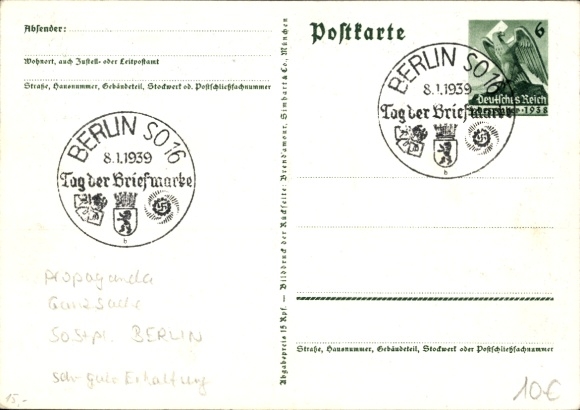 Absender:
Wohnort, auch Zustell- oder Leitpostamt
Straße, Hausnummer, Gebäudeteil, Stockwerk od. Postschließfachnummer
BERLIN SO 16
8.1.1939
Tag der Briefmarke
b
Propaganda
Ganzsache
SoStpl. BERLIN
sehr gute Erhaltung
15,-
Abgabepreis 15 Rpf. – Bilddruck der Rückseite: Brend'amour, Simhart & Co., München
Postkarte
6
Deutsches Reich
1938
BERLIN SO 16
8.1.1939
Tag der Briefmarke
b
Straße, Hausnummer, Gebäudeteil, Stockwerk oder Postschließfachnummer
10€